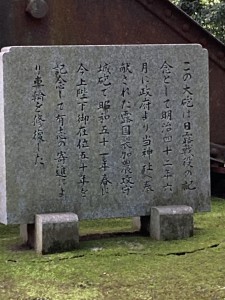 この大砲は日露戦役の記
念として明治四十二年六
月に政府より当神社へ奉
献された露国式加農攻守
城砲で昭和五十一年春に
今上陛下御在位五十年を
記念して有志の寄進によ
り車輪を修復した